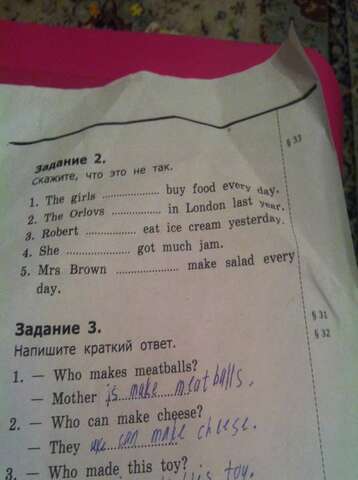 § 33
Задание 2.
Скажите, что это не так.
1. The girls .................. buy food every day.
2. The Orlovs ................ in London last year.
3. Robert ................ eat ice cream yesterday.
4. She .................. got much jam.
5. Mrs Brown .................... make salad every
day.
§ 31
§ 32
Задание 3.
Напишите краткий ответ.
1. — Who makes meatballs?
— Mother is make meatballs.
2. — Who can make cheese?
— They can make cheese.
3. — Who made this toy?
this toy.